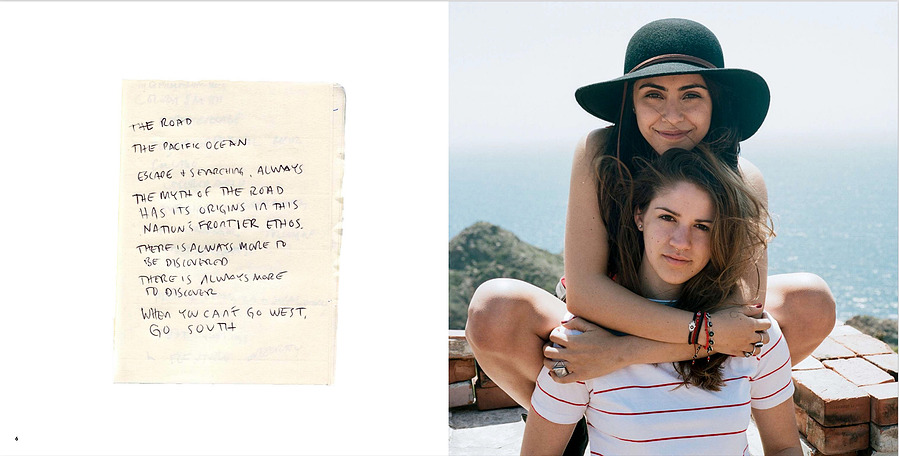 THE ROAD
THE PACIFIC OCEAN
ESCAPE + SEARCHING, ALWAYS
THE MYTH OF THE ROAD
HAS ITS ORIGINS IN THIS
NATION'S FRONTIER ETHOS.
THERE IS ALWAYS MORE TO
BE DISCOVERED
THERE IS ALWAYS MORE
TO DISCOVER
WHEN YOU CAN'T GO WEST,
GO SOUTH
6